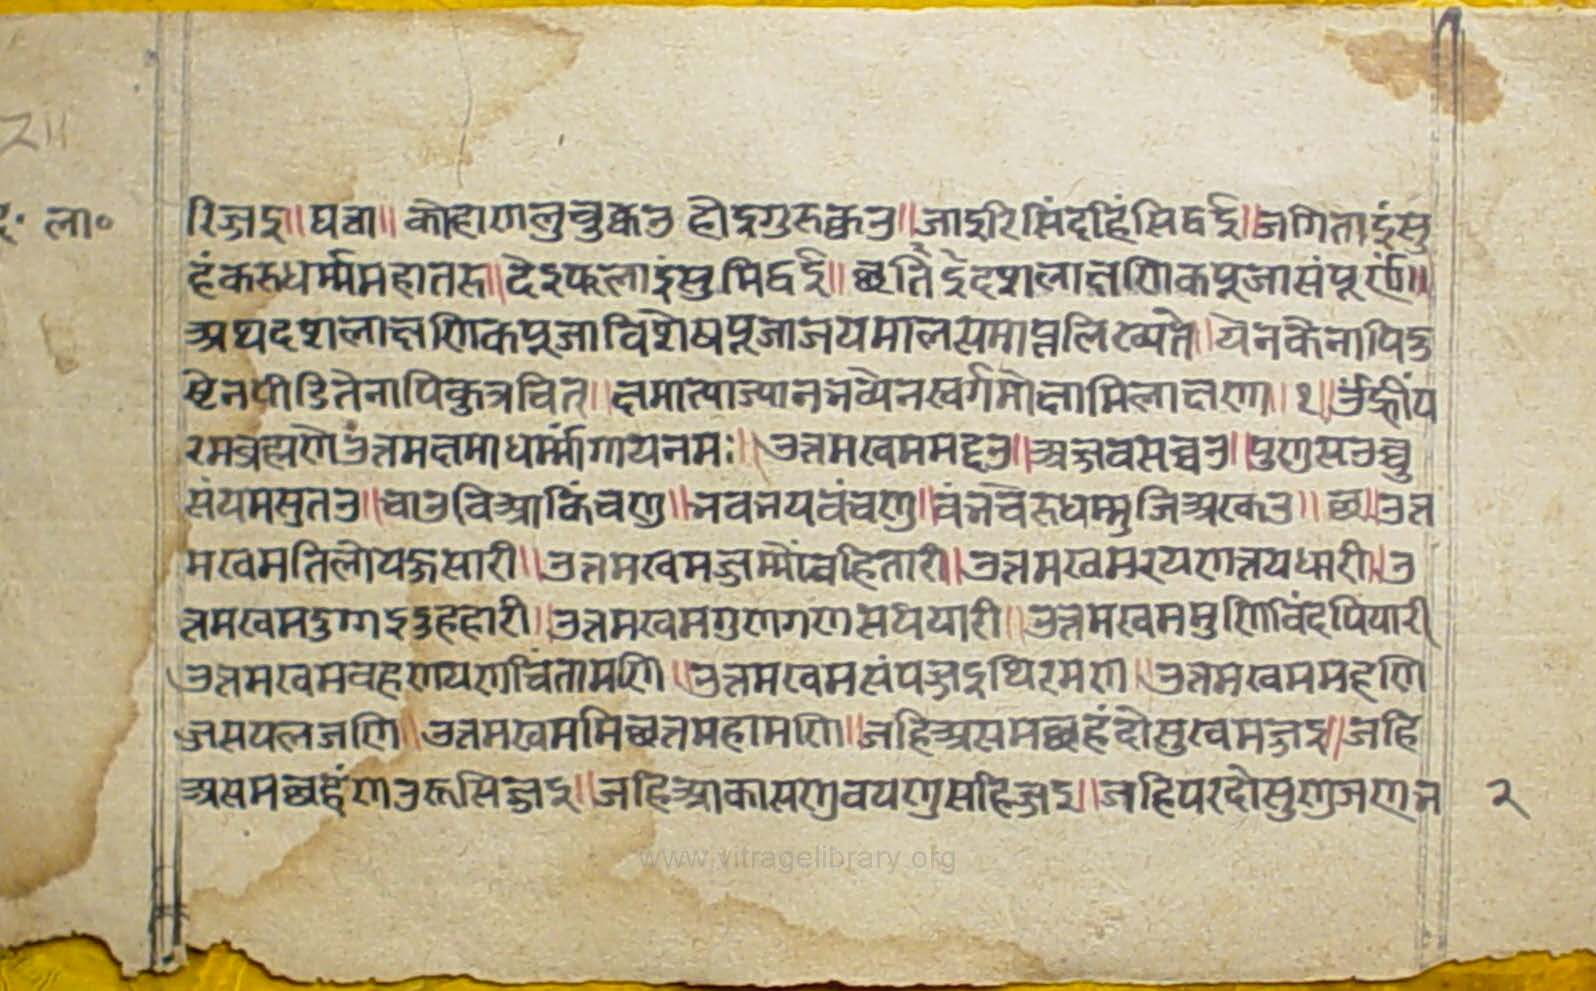 २॥
द॰ ला॰
रिज्जइ॥घत्ता॥कोहाणलुचुक्कउ होइगुरुक्कउ॥जाइरिसिंदहिंसिट्ठई॥जगिताइंसु
हंकरुधर्म्ममहातरु॥देइफलाइंसुमिट्ठई॥छ॥इतिदशलाक्षणिकपूजासंपूर्ण॥
अथदशलाक्षणिकपूजाविशेषपूजाजयमालसमाप्तलिख्यते॥येनकेनापिदु
ष्टेनपीडितेनापिकुत्रचित्॥क्षमात्याज्यानभव्येनस्वर्गमोक्षाभिलाक्षणा॥१॥ॐह्रींप
रमब्रह्मणेउत्तमक्षमाधर्म्मांगायनमः॥उत्तमखममद्दउ॥अज्जवसच्चउ॥पुणुसउच्चु
संयमसुतउ॥चाउविआकिंचणु॥भवभयवंचणु॥बंभचेरुधम्मुजिअखउ॥छ॥उत्त
मखमतिलोयकसारी॥उत्तमखमजम्मोवहितारी॥उत्तमखमरयणत्तयधारी॥उ
त्तमखमदुग्गइदुहहारी॥उत्तमखमगुणगणसहयारी॥उत्तमखममुणिविंदपियारी
उत्तमखमवहणयणचिंतामणि॥उत्तमखमसंपज्जइथिरमण॥उत्तमखममहणि
जसयलजणि॥उत्तमखममिछत्ततमहामणि॥जहिअसमछहंदोसुखमज्जइ॥जहि
असमछहंणउरूसिज्जइ॥जहिआकोसणुवयणुसहिज्जइ॥जहिपरदोसुणुजणभ
२
www.vitragelibrary.org